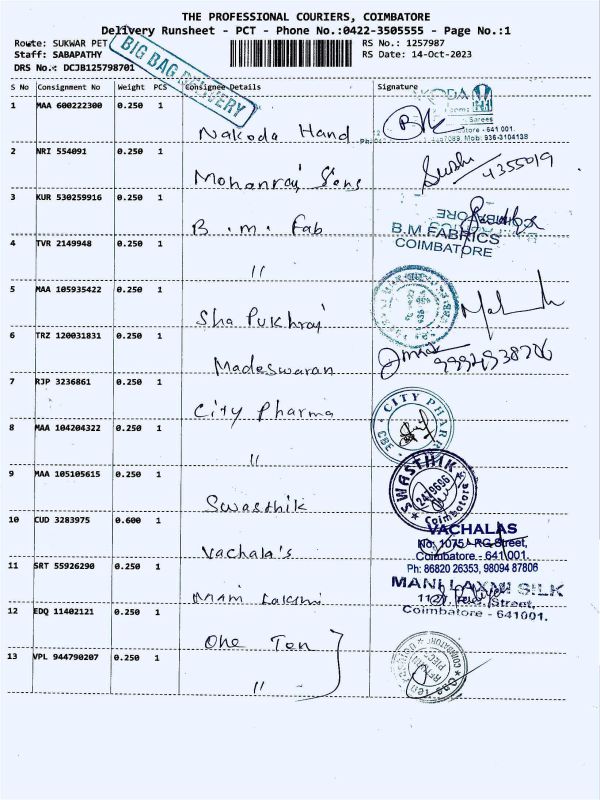 THE PROFESSIONAL COURIERS, COIMBATORE
Delivery Runsheet - PCT - Phone No.:0422-3505555 - Page No.:1
Route: SUKWAR PET
RS No.: 1257987
Staff: SABAPATHY
RS Date: 14-Oct-2023
DRS No.: DCJB125798701
BIG BAG DELIVERY
S No Consignment No Weight PCS Consignee Details Signature
1 MAA 600222300 0.250 1 Nakoda Hand
Sarees
641 001.
Mob: 936-3104138
2 NRI 554091 0.250 1 Mohanraj Sons
4355019
3 KUR 530259916 0.250 1 B.M. Fab
B.M FABRICS
COIMBATORE
4 TVR 2149948 0.250 1 "
5 MAA 105935422 0.250 1 Sha Pukhraj
6 TRZ 120031831 0.250 1 Madeswaran
7 RJP 3236861 0.250 1 City Pharma
CITY PHAR
CBE
8 MAA 104204322 0.250 1 "
9 MAA 105105615 0.250 1 Swasthik
SWASTHIK
2419696
Coimbatore
10 CUD 3283975 0.600 1 Vachala's
VACHALAS
No: 1075, RG Street,
Coimbatore - 641 001.
Ph: 86820 26353, 98094 87806
11 SRT 55926290 0.250 1 Mani Lakshmi
MANI LAXMI SILK
Street,
Coimbatore - 641001.
12 EDQ 11402121 0.250 1 One Ten
13 VPL 944790207 0.250 1 "